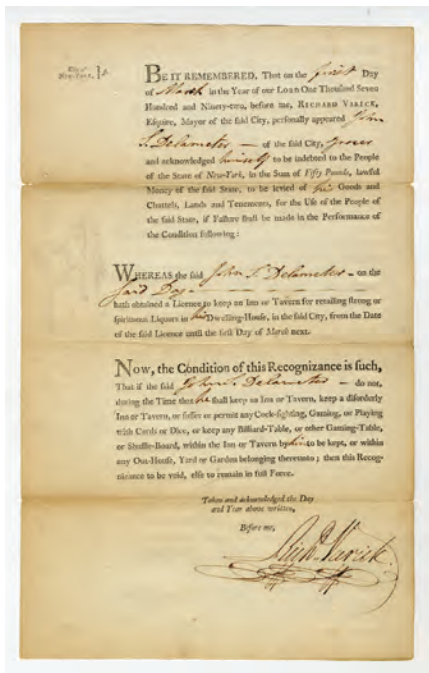 City of
New-York,
BE IT REMEMBERED, That on the first Day
of March in the Year of our LORD One Thousand Seven
Hundred and Ninety-two, before me, RICHARD VARICK,
Esquire, Mayor of the ſaid City, perſonally appeared John
S. Delameter — of the ſaid City, Grocer
and acknowledged himself to be indebted to the People
of the State of New-York, in the Sum of Fifty Pounds, lawful
Money of the ſaid State, to be levied of his Goods and
Chattels, Lands and Tenements, for the Uſe of the People of
the ſaid State, if Failure ſhall be made in the Performance of
the Condition following:
WHEREAS the ſaid John S. Delameter — on the
said Day —
hath obtained a Licence to keep an Inn or Tavern for retailing ſtrong or
ſpirituous Liquors in his Dwelling-Houſe, in the ſaid City, from the Date
of the ſaid Licence until the firſt Day of March next.
Now, the Condition of this Recognizance is ſuch,
That if the ſaid John S. Delameter — do not,
during the Time that he ſhall keep an Inn or Tavern, keep a diſorderly
Inn or Tavern, or ſuffer or permit any Cock-fighting, Gaming, or Playing
with Cards or Dice, or keep any Billiard-Table, or other Gaming-Table,
or Shuffle-Board, within the Inn or Tavern by him to be kept, or within
any Out-Houſe, Yard or Garden belonging thereunto; then this Recog-
nizance to be void, elſe to remain in full Force.
Taken and acknowledged the Day
and Year above written,
Before me,
Richd. Varick